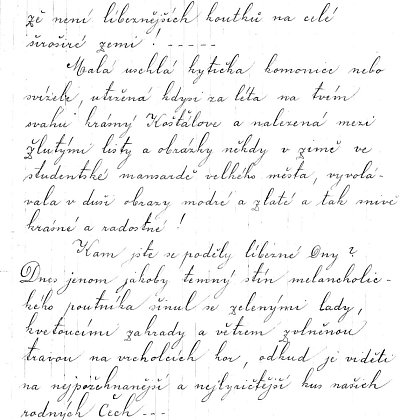 že není líbeznějších koutků na celé
široširé zemi ! - - - - -
Malá uschlá kytička komonice nebo
svízele, utržená kdysi za léta na tvém
svahu krásný Košťálove a nalezená mezi
žlutými listy a obrázky někdy v zimě ve
studentské mansardě velkého města, vyvolá-
vala v duši obrazy modré a zlaté a tak snivě
krásné a radostné !
Kam jste se poděly líbezné Dny ?
Dnes jenom jakoby temný stín melancholic-
kého poutníka šinul se zelenými lady,
kvetoucími zahrady a větrem zvlněnou
travou na vrcholcích hor, odkud je viděti
na nejpožehnanější a nejlyričtější kus našich
rodných Čech - - -